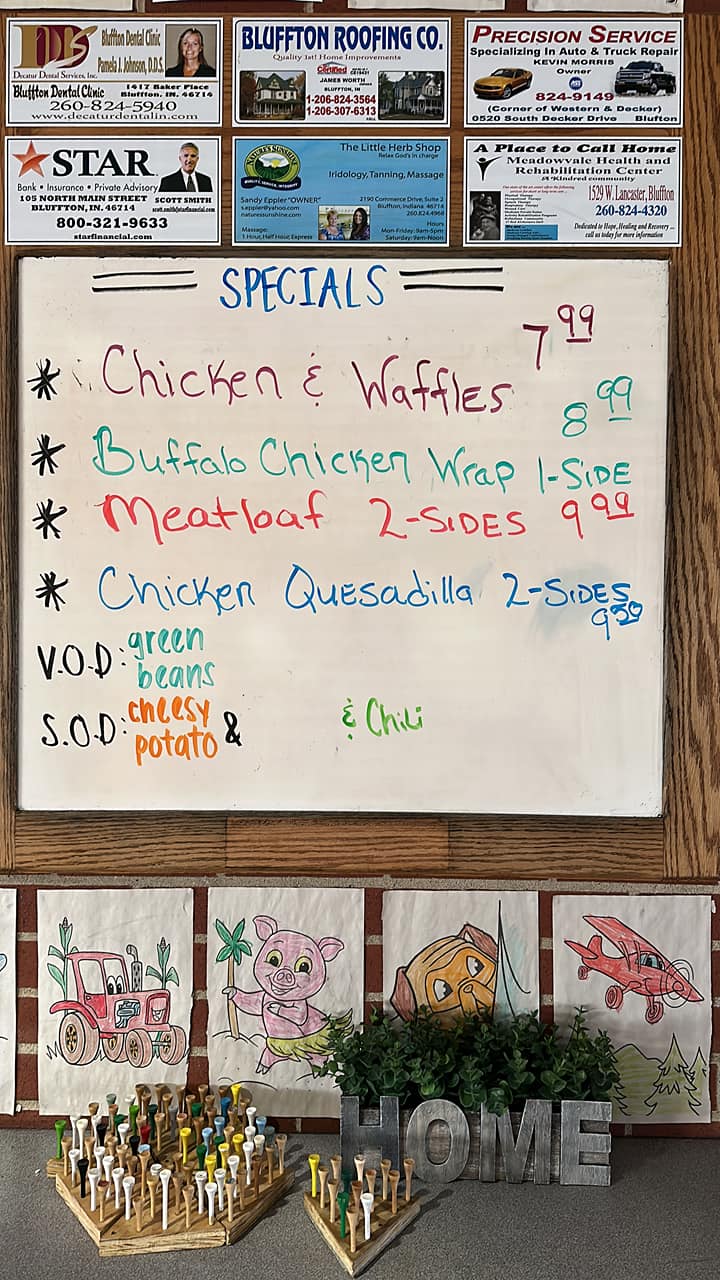 DDS
Decatur Dental Services, Inc.
Bluffton Dental Clinic
Pamela J. Johnson, D.D.S.
Bluffton Dental Clinic
1417 Baker Place
Bluffton, IN. 46714
260-824-5940
www.decaturdentalin.com
BLUFFTON ROOFING CO.
Quality 1st! Home Improvements
Certified
JAMES WORTH
BLUFFTON, IN
1-206-824-3564
1-206-307-6313
PRECISION SERVICE
Specializing In Auto & Truck Repair
KEVIN MORRIS
Owner
824-9149
(Corner of Western & Decker)
0520 South Decker Drive Blufton
STAR
Bank • Insurance • Private Advisory
105 NORTH MAIN STREET
BLUFFTON, IN. 46714
SCOTT SMITH
scott.smith@starfinancial.com
800-321-9633
starfinancial.com
NATURE'S SUNSHINE
QUALITY, SERVICE, INTEGRITY
The Little Herb Shop
Relax God's in charge
Iridology, Tanning, Massage
Sandy Eppler "OWNER"
s.appler@yahoo.com
naturessunshine.com
2190 Commerce Drive, Suite 2
Bluffton, Indiana 46714
260.824.4968
Massage:
1 Hour, Half Hour, Express
Hours
Mon-Friday: 9am-5pm
Saturday: 9am-Noon
A Place to Call Home
Meadowvale Health and
Rehabilitation Center
A Kindred community
1529 W. Lancaster, Bluffton
260-824-4320
Dedicated to Hope, Healing and Recovery ...
call us today for more information
SPECIALS
* Chicken & Waffles 7 99
* Buffalo Chicken Wrap 1-SIDE 8 99
* Meatloaf 2-SIDES 9 99
* Chicken Quesadilla 2-SIDES 9 50
V.O.D: green beans
S.O.D: cheesy potato & & Chili
HOME